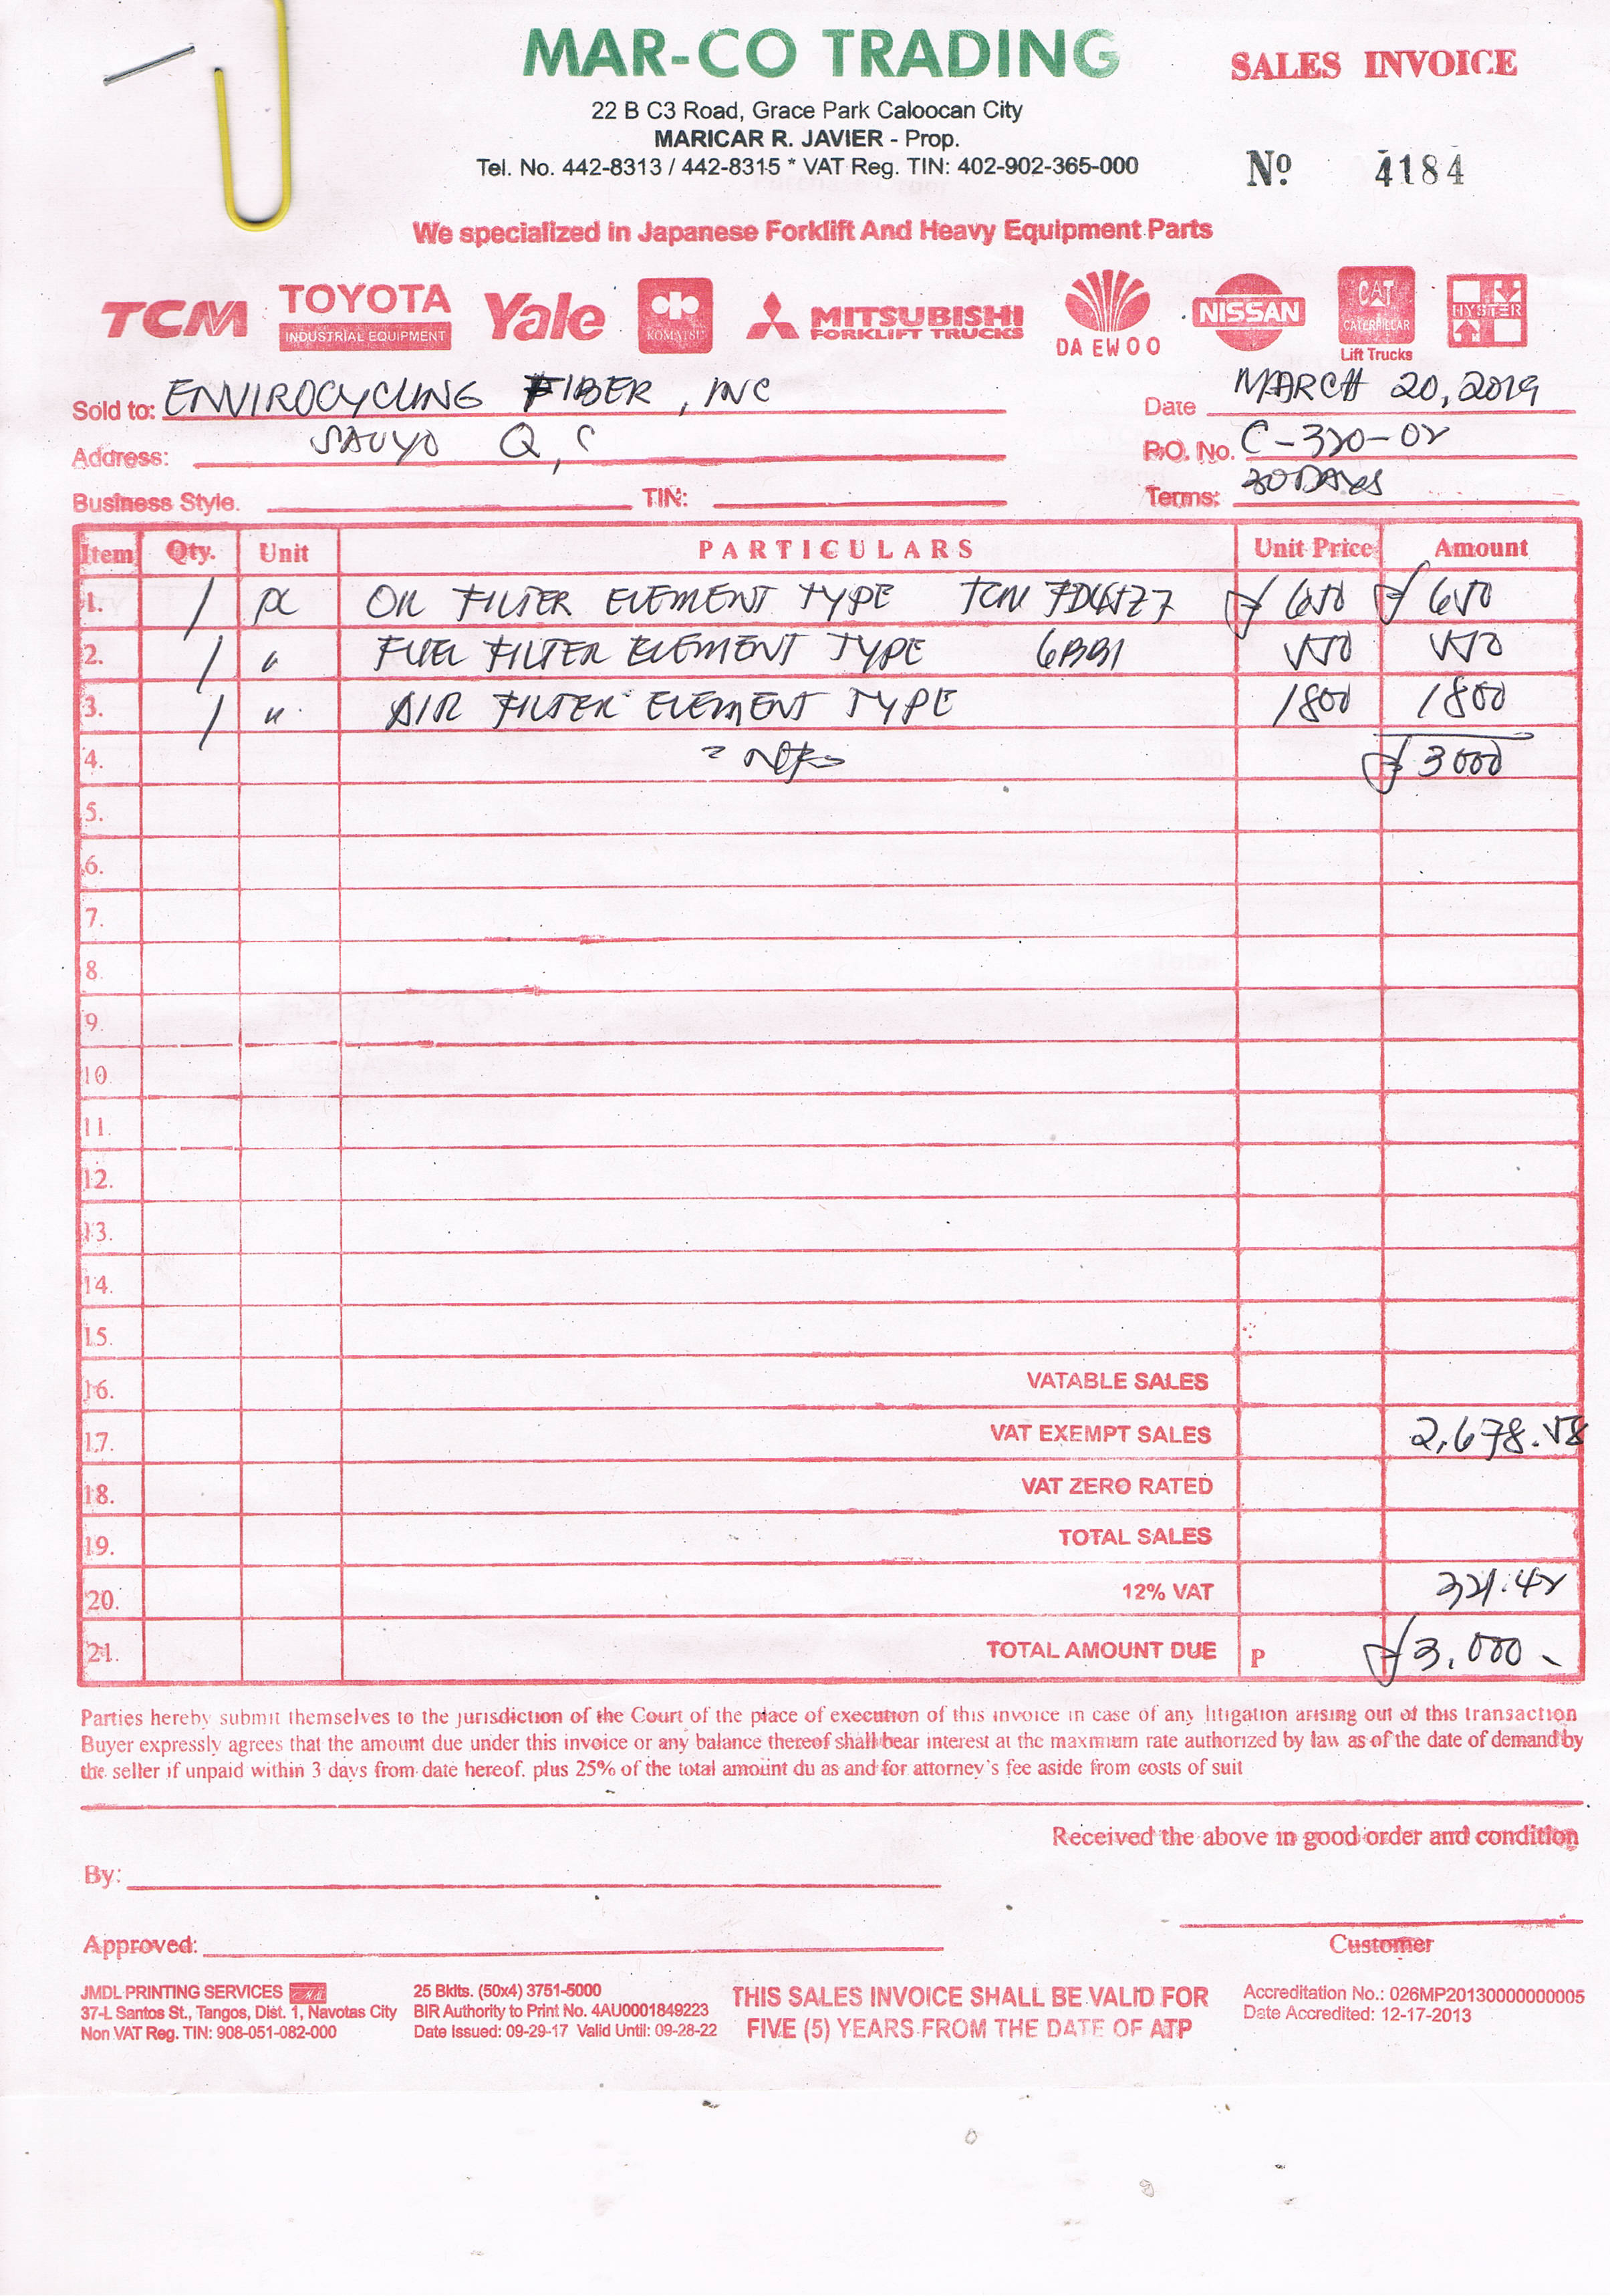 MAR-CO TRADING
SALES INVOICE
22 B C3 Road, Grace Park Caloocan City
MARICAR R. JAVIER - Prop.
Tel. No. 442-8313 / 442-8315 * VAT Reg. TIN: 402-902-365-000
Nº 4184
We specialized in Japanese Forklift And Heavy Equipment Parts
TCM TOYOTA INDUSTRIAL EQUIPMENT Yale KOMATSU MITSUBISHI FORKLIFT TRUCKS DAEWOO NISSAN CAT CATERPILLAR Lift Trucks HYSTER
Sold to: ENVIROCYCLING FIBER, INC Date MARCH 20, 2019
Address: SAUYO Q,C P.O. No. C-320-02
Business Style. TIN: Terms: 30 DAYS
Item Qty. Unit PARTICULARS Unit Price Amount
1. 1 pc OIL FILTER ELEMENT TYPE TCM ₱ 650 ₱ 650
2. 1 " FUEL FILTER ELEMENT TYPE 6BB1 550 550
3. 1 " AIR FILTER ELEMENT TYPE 1800 1800
4. ₱ 3000
5.
6.
7.
8.
9.
10.
11.
12.
13.
14.
15.
16. VATABLE SALES
17. VAT EXEMPT SALES 2,678.58
18. VAT ZERO RATED
19. TOTAL SALES
20. 12% VAT 321.42
21. TOTAL AMOUNT DUE P ₱3,000-
Parties hereby submit themselves to the jurisdiction of the Court of the place of execution of this invoice in case of any litigation arising out of this transaction
Buyer expressly agrees that the amount due under this invoice or any balance thereof shall bear interest at the maxmum rate authorized by law as of the date of demand by
the seller if unpaid within 3 days from date hereof. plus 25% of the total amount du as and for attorney's fee aside from costs of suit
Received the above in good order and condition
By:
Approved:
Customer
JMDL PRINTING SERVICES
37-L Santos St., Tangos, Dist. 1, Navotas City
Non VAT Reg. TIN: 908-051-082-000
25 Bklts. (50x4) 3751-5000
BIR Authority to Print No. 4AU0001849223
Date Issued: 09-29-17 Valid Until: 09-28-22
THIS SALES INVOICE SHALL BE VALID FOR
FIVE (5) YEARS FROM THE DATE OF ATP
Accreditation No.: 026MP20130000000005
Date Accredited: 12-17-2013